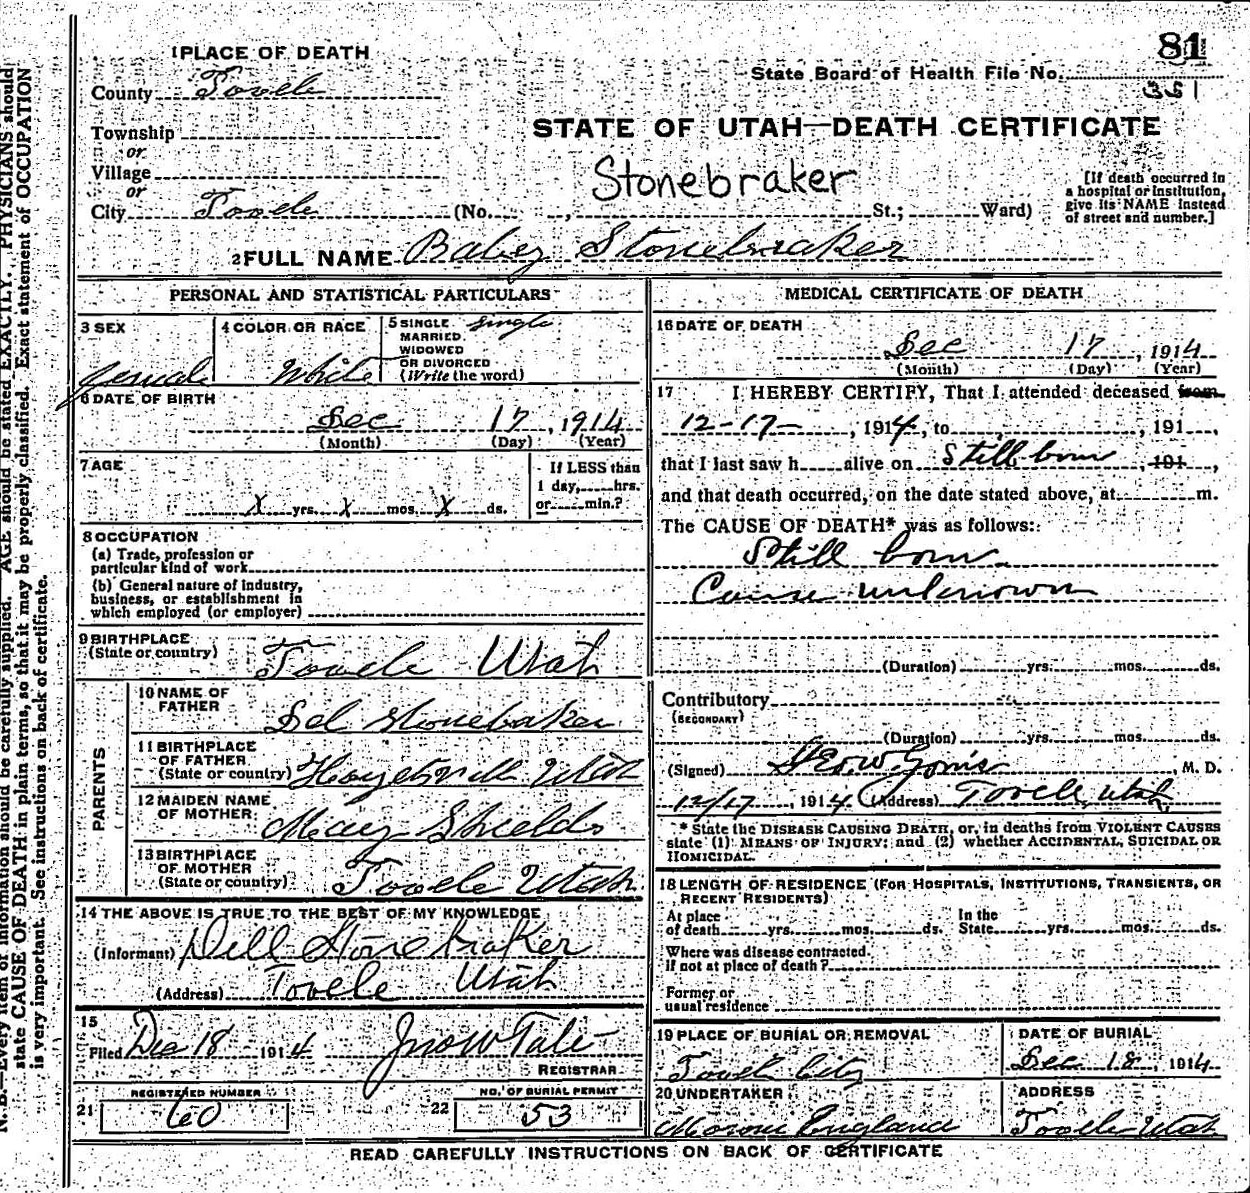 81
State Board of Health File No.
351
1 PLACE OF DEATH
County Tooele
Township
or
Village
or
City Tooele
STATE OF UTAH—DEATH CERTIFICATE
Stonebraker
(No. , St.; Ward)
[If death occurred in
a hospital or institution,
give its NAME instead
of street and number.]
2 FULL NAME Baby Stonebraker
PERSONAL AND STATISTICAL PARTICULARS
3 SEX
Female
4 COLOR OR RACE
White
5 SINGLE single
MARRIED
WIDOWED
OR DIVORCED
(Write the word)
6 DATE OF BIRTH
Dec 17, 1914
(Month) (Day) (Year)
7 AGE
X yrs. X mos. X ds.
If LESS than
1 day, hrs.
or min.?
8 OCCUPATION
(a) Trade, profession or
particular kind of work
(b) General nature of industry,
business, or establishment in
which employed (or employer)
9 BIRTHPLACE
(State or country) Tooele Utah
PARENTS
10 NAME OF
FATHER Del Stonebraker
11 BIRTHPLACE
OF FATHER
(State or country) Utah
12 MAIDEN NAME
OF MOTHER May Shields
13 BIRTHPLACE
OF MOTHER
(State or country) Tooele Utah
14 THE ABOVE IS TRUE TO THE BEST OF MY KNOWLEDGE
(Informant) Dell Stonebraker
(Address) Tooele Utah
15
Filed Dec 18 1914 Jno W Tate
REGISTRAR
REGISTERED NUMBER
21 60
NO. OF BURIAL PERMIT
22 53
MEDICAL CERTIFICATE OF DEATH
16 DATE OF DEATH
Dec 17, 1914
(Month) (Day) (Year)
17 I HEREBY CERTIFY, That I attended deceased from
12-17-, 1914, to , 191 ,
that I last saw h alive on Still born, 191 ,
and that death occurred, on the date stated above, at m.
The CAUSE OF DEATH* was as follows:
Still born
Cause unknown
(Duration) yrs. mos. ds.
Contributory
(SECONDARY)
(Duration) yrs. mos. ds.
(Signed) M. D.
12/17, 1914 (Address) Tooele, Utah
* State the DISEASE CAUSING DEATH, or, in deaths from VIOLENT CAUSES
state (1) MEANS OF INJURY; and (2) whether ACCIDENTAL, SUICIDAL OR
HOMICIDAL.
18 LENGTH OF RESIDENCE (FOR HOSPITALS, INSTITUTIONS, TRANSIENTS, OR
RECENT RESIDENTS)
At place
of death yrs. mos. ds.
In the
State yrs. mos. ds.
Where was disease contracted
if not at place of death?
Former or
usual residence
19 PLACE OF BURIAL OR REMOVAL
Tooele City
DATE OF BURIAL
Dec 18, 1914
20 UNDERTAKER
Moroni England
ADDRESS
Tooele Utah
READ CAREFULLY INSTRUCTIONS ON BACK OF CERTIFICATE
N. B.—Every item of information should be carefully supplied. AGE should be stated EXACTLY. PHYSICIANS should
state CAUSE OF DEATH in plain terms, so that it may be properly classified. Exact statement of OCCUPATION
is very important. See instructions on back of certificate.